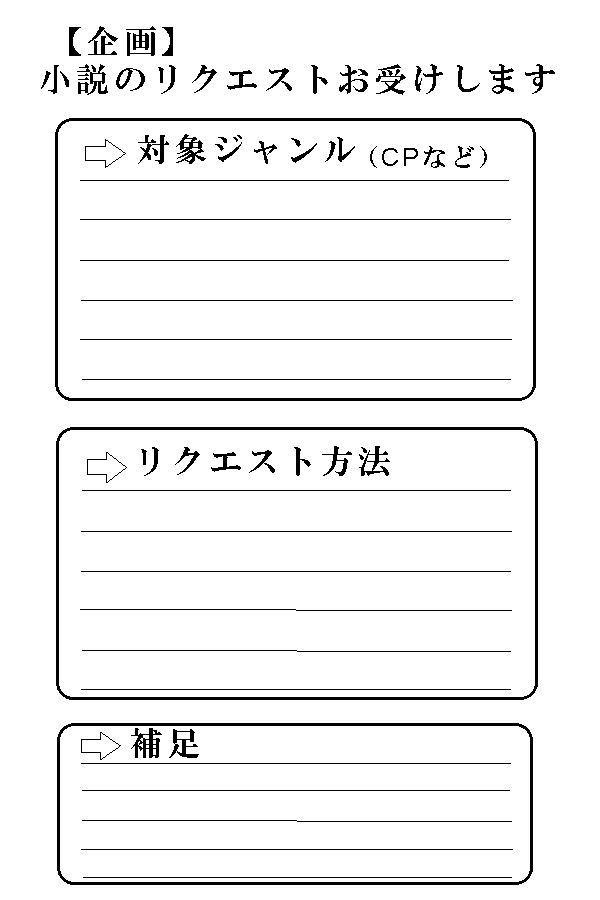 【企画】
小説のリクエストお受けします
対象ジャンル（CPなど）
リクエスト方法
補足